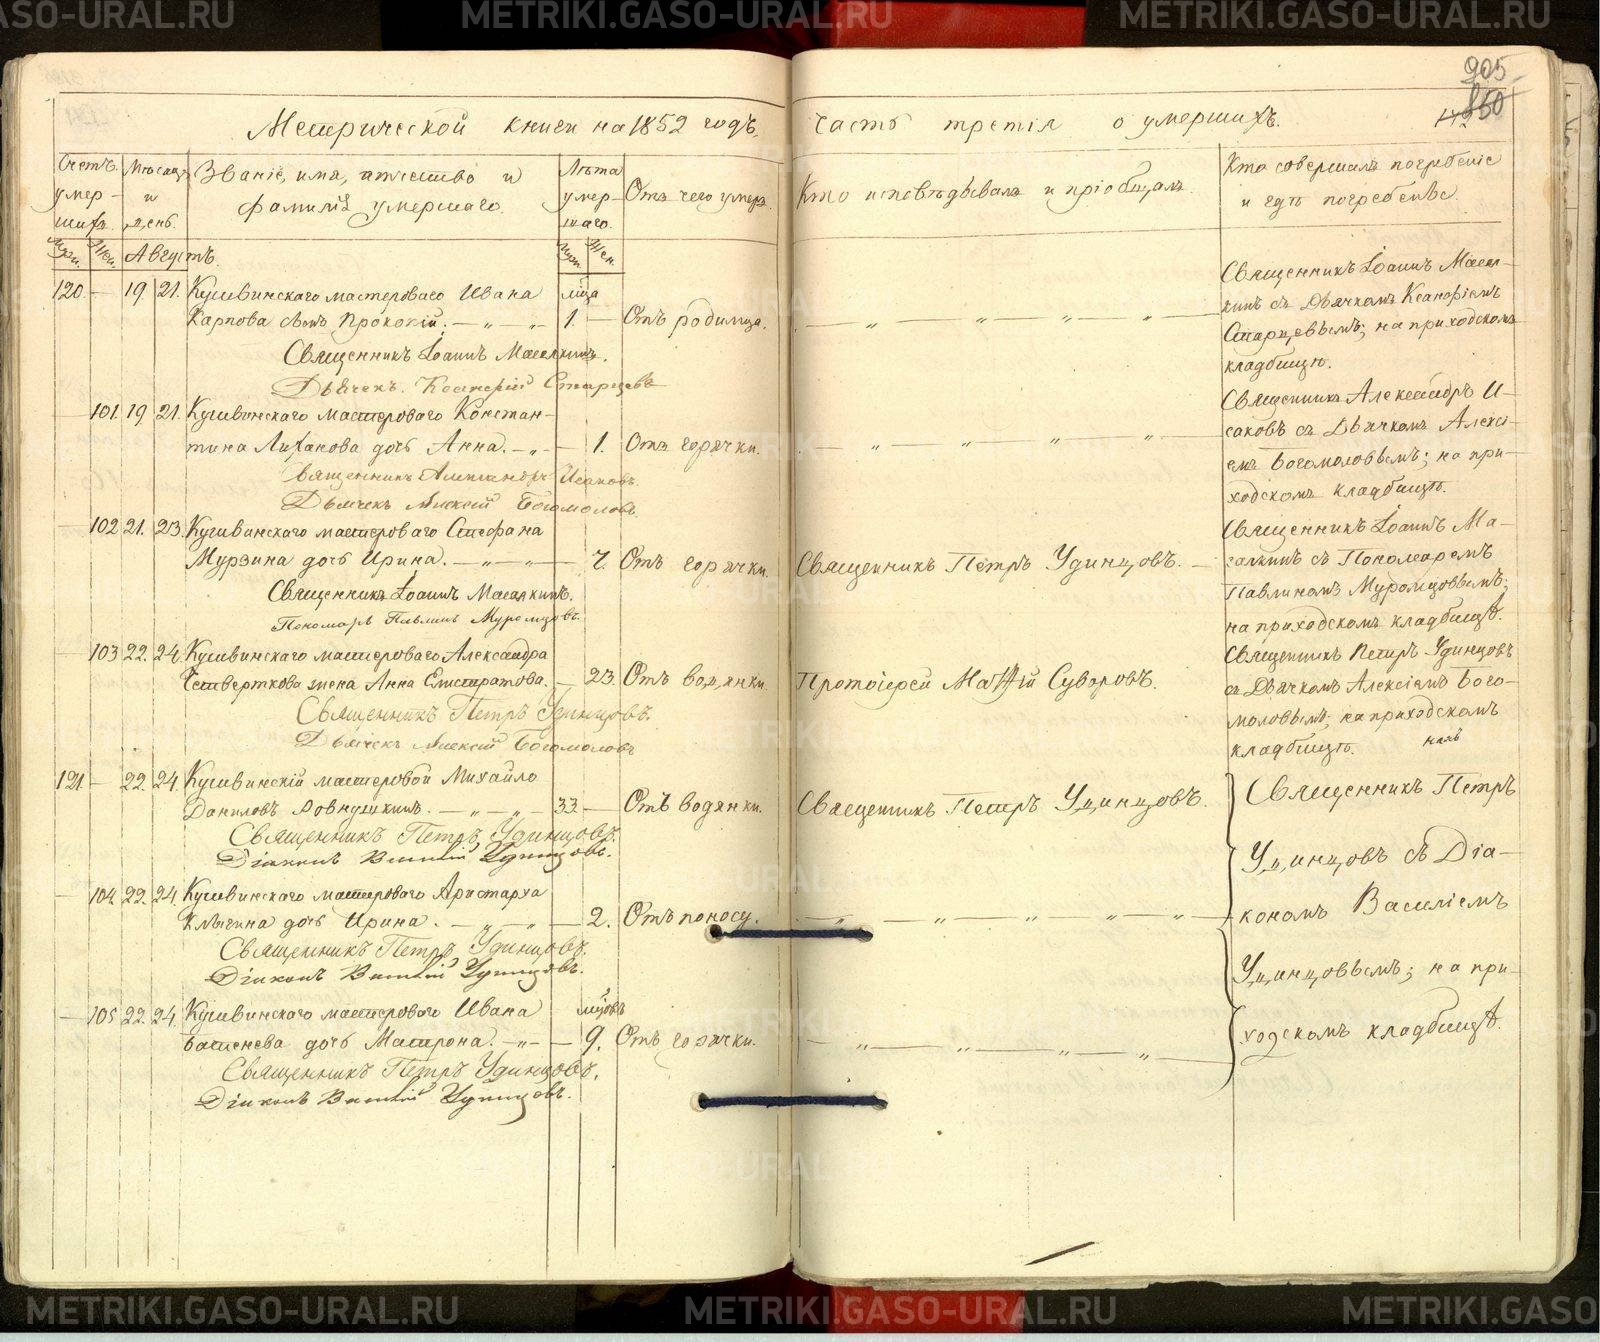 METRIKI.GASO-URAL.RU
905
850
Метрической книги на 1852 годъ,
часть третія о умершихъ.
Счетъ умер-шихъ.
Муж.
Жен.
Мѣсяцъ и день.
Августъ.
Званіе, имя, отчество и фамилія умершаго.
Лѣта умер-шаго.
Муж.
Жен.
Отъ чего умеръ.
Кто исповѣдывалъ и пріобщалъ.
Кто совершалъ погребеніе и гдѣ погребены.
120. — 19 21. Кушвинскаго мастероваго Ивана
Карпова сынъ Прокопій. — „ — „ 1. — Отъ родимца. — „ — „ — „ — „
Священникъ Іоаннъ Масалкинъ.
Дьячекъ Ксенофій Старцевъ
Священникъ Іоаннъ Масал-
кинъ съ Дьячкомъ Ксенофіемъ
Старцевымъ; на приходскомъ
кладбищѣ.
— 101. 19 21. Кушвинскаго мастероваго Констан-
тина Лиханова дочь Анна. — „ — 1. Отъ горячки. — „ — „ — „ — „
Священникъ Александръ Исаковъ.
Дьячекъ Алексій Богомоловъ.
Священникъ Александръ И-
саковъ съ Дьячкомъ Алексі-
емъ Богомоловымъ; на при-
ходскомъ кладбищѣ.
— 102 21. 23. Кушвинскаго мастероваго Стефана
Мурзина дочь Ирина. — „ — „ — 7. Отъ горячки. Священникъ Петръ Удинцовъ. —
Священникъ Іоаннъ Масалкинъ.
Пономарь Павлинъ Муромцовъ.
Священникъ Іоаннъ Ма-
салкинъ съ Пономаремъ
Павлиномъ Муромцовымъ;
на приходскомъ кладбищѣ.
— 103 22. 24. Кушвинскаго мастероваго Александра
Четверткова жена Анна Елистратова. — 23. Отъ водянки. Протоіерей Матѳій Суворовъ.
Священникъ Петръ Удинцовъ.
Дьячекъ Алексій Богомоловъ
Священникъ Петръ Удинцовъ
съ Дьячкомъ Алексіемъ Бого-
моловымъ; на приходскомъ
кладбищѣ.
121. — 22. 24. Кушвинскій мастеровой Михайло
Даниловъ Ровнушкинъ. — „ — „ — 33. — Отъ водянки. Священникъ Петръ Удинцовъ.
Священникъ Петръ Удинцовъ.
Діаконъ Василій Удинцовъ.
Священникъ Петръ
Удинцовъ съ Діа-
кономъ Василіемъ
Удинцовымъ; на при-
ходскомъ кладбищѣ.
— 104. 22. 24. Кушвинскаго мастероваго Аристарха
Клычина дочь Ирина. — „ — „ — 2. Отъ поносу. — „ — „ — „ — „ — „
Священникъ Петръ Удинцовъ.
Діаконъ Василій Удинцовъ.
— 105 22. 24. Кушвинскаго мастероваго Ивана мѣсяцовъ
Башенева дочь Матрона. — „ — 9. Отъ горячки. — „ — „ — „ — „
Священникъ Петръ Удинцовъ.
Діаконъ Василій Удинцовъ.
METRIKI.GASO-URAL.RU